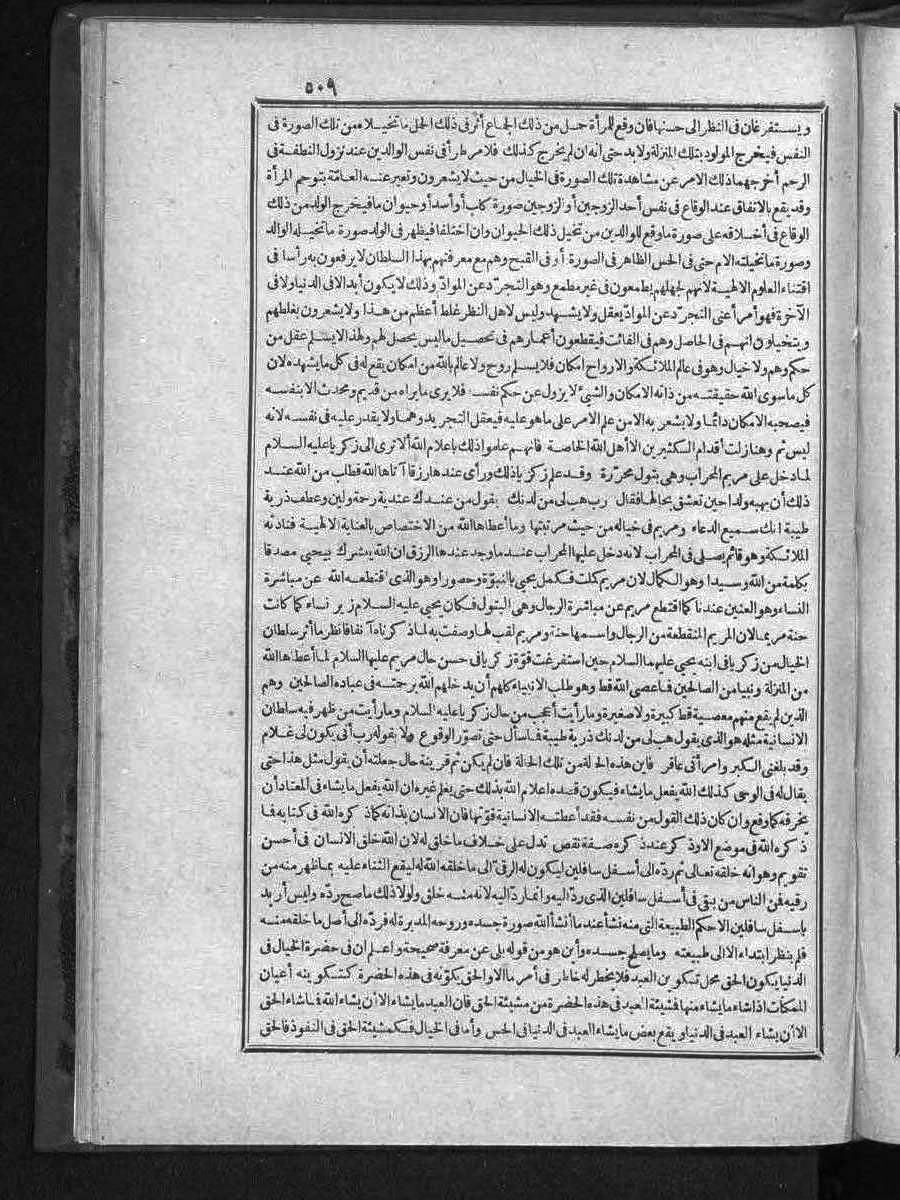 ٥٠٩
ويستفرغان فى النظر الى حسنها فان وقع للمرأة حمل من ذلك الجماع أثر فى ذلك الحمل ما تخيلاه من تلك الصورة فى
النفس فيخرج المولود بتلك المنزلة ولا بد حتى انه ان لم يخرج كذلك فلامر طرأ فى نفس الوالدين عند نزول النطفة فى
الرحم أخرجهما ذلك الامر عن مشاهدة تلك الصورة فى الخيال من حيث لا يشعرون وتعبر عنه العامّة بتوحم المرأة
وقد يقع بالاتفاق عند الوقاع فى نفس أحد الزوجين أو الزوجين صورة كلب أو أسد أو حيوان ما فيخرج الولد من ذلك
الوقاع فى أخلاقه على صورة ما وقع للوالدين من تخيل ذلك الحيوان وان اختلفا فيظهر فى الولد صورة ما تخيله الوالد
وصورة ما تخيلته الام حتى فى الحس الظاهر فى الصورة أو فى القبح وهم مع معرفتهم بهذا السلطان لا يرفعون به رأسا فى
اقتناء العلوم الالهية لانهم لجهلهم يطمعون فى غير مطمع وهو التجرّد عن الموادّ وذلك لا يكون أبدا لا فى الدنيا ولا فى
الآخرة فهو أمر أعنى التجرّد عن الموادّ يعقل ولا يشهد وليس لاهل النظر غلط أعظم من هذا ولا يشعرون بغلطهم
ويتخيلون انهم فى الحاصل وهم فى الفائت فيقطعون أعمارهم فى تحصيل ما ليس يحصل لهم ولهذا لا يسلم عقل من
حكم وهم ولا خيال وهو فى عالم الملائكة والارواح امكان فلا يسلم روح ولا عالم بالله من امكان يقع له فى كل ما يشهده لان
كل ما سوى الله حقيقته من ذاته الامكان والشئ لا يزول عن حكم نفسه فلا يرى ما يراه من قديم ومحدث الا بنفسه
فيصحبه الامكان دائما ولا يشعر به الا من علم الامر على ما هو عليه فيعقل التجريد وهما ولا يقدر عليه فى نفسه لانه
ليس ثم وهنا زلت أقدام الكثيرين الا أهل الله الخاصة فانهم علموا ذلك باعلام الله ألا ترى الى زكريا عليه السلام
لما دخل على مريم المحراب وهى بتول محررة وقد علم زكريا ذلك ورأى عندها رزقا آتاها الله فطلب من الله عند
ذلك أن يهبه ولدا حين تعشق بحالها فقال رب هب لى من لدنك يقول من عندك عندية رحة ولين وعطف ذرية
طيبة انك سميع الدعاء ومريم فى خياله من حيث مرتبتها وما أعطاها الله من الاختصاص بالعناية الالهية فنادته
الملائكة وهو قائم يصلى فى المحراب لانه دخل عليها المحراب عند ما وجد عندها الرزق ان الله يبشرك بيحيى مصدقا
بكلمة من الله وسيدا وهو الكمال لان مريم كملت فكمل يحيى بالنبوّة وحصورا وهو الذى اقتطعه الله عن مباشرة
النساء وهو العنين عندنا كما اقتطع مريم عن مباشرة الرجال وهى البتول فكان يحيى عليه السلام زير نساء كما كانت
حنة مريما لان المريم المنقطعة من الرجال واسمها حنة ومريم لقب لها وصفت به لما ذكرناه آنفا فانظر ما أثر سلطان
الخيال من زكريا فى ابنه يحيى عليهما السلام حين استفرغت قوّة زكريا فى حسن حال مريم عليها السلام لما أعطاها الله
من المنزلة ونبيا من الصالحين فما عصى الله قط وهو طلب الانبياء كلهم أن يدخلهم الله برحمته فى عباده الصالحين وهم
الذين لم يقع منهم معصية قط كبيرة ولا صغيرة وما رأيت أعجب من حال زكريا عليه السلام وما رأيت من ظهر فيه سلطان
الانسانية مثله هو الذى يقول هب لى من لدنك ذرية طيبة فما سأل حتى تصوّر الوقوع ولا بقوله رب أنى يكون لى غلام
وقد بلغنى الكبر وامرأتى عاقر فاين هذه الحالة من تلك الحالة فان لم يكن ثم قرينة حال جعلته أن يقول مثل هذا حتى
يقال له فى الوحى كذلك الله يفعل ما يشاء فيكون قصده اعلام الله بذلك حتى يعلم غيره ان الله يفعل ما يشاء فى المعتاد أن
يخرقه كما وقع وان كان ذلك القول من نفسه فقد أعطته الانسانية قوّتها فان الانسان بذاته كما ذكره الله فى كتابه فما
ذكره الله فى موضع الا وذكر عند ذكره صفة نقص تدل على خلاف ما خلق له لان الله خلق الانسان فى أحسن
تقويم وهو انه خلقه تعالى ثم ردّه الى أسفل سافلين ليكون له الرقىّ الى ما خلقه الله له ليقع الثناء عليه بما ظهر منه من
رقيه فمن الناس من بقى فى أسفل سافلين الذى ردّ اليه وانما ردّ اليه لانه منه خلق ولولا ذلك ما صح ردّه وليس أريد
باسفل سافلين الا حكم الطبيعة التى منه نشأ عند ما أنشأ الله صورة جسده وروحه المدبرة له فردّه الى أصل ما خلقه منه
فلم ينظر ابتداء الا الى طبيعته وما يصلح جسده وأين هو من قوله بلى عن معرفة صحيحة واعلم ان فى حضرة الخيال فى
الدنيا يكون الحق محل تكوين العبد فلا يخطر له خاطر فى أمر ما الا والحق يكوّنه فى هذه الحضرة كتكوينه أعيان
الممكنات اذا شاء ما يشاء منها فمشيئة العبد فى هذه الحضرة من مشيئة الحق فان العبد ما يشاء الا أن يشاء الله فما شاء الحق
الا أن يشاء العبد فى الدنيا ويقع بعض ما يشاء العبد فى الدنيا فى الحس وأما فى الخيال فكمشيئة الحق فى النفوذ فالحق